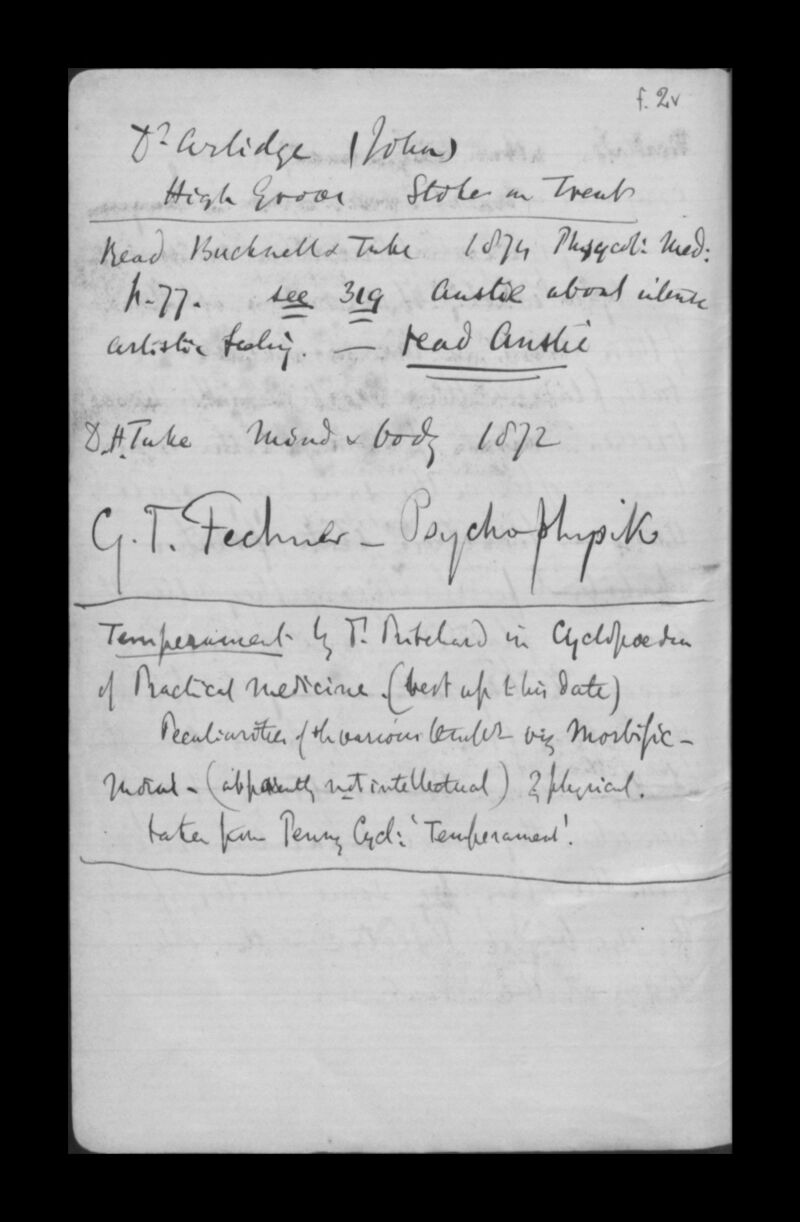 f. 2v
Dr Arlidge (John)
High Grove Stoke on Trent
Read Bucknell & Tuke 1874 Phsycol: Med:
p. 77. see 319 Anstie about
artistic feeling. — read Anstie
D. H. Tuke Mind & body 1872
G. T. Fechner – Psychophysik
Temperament by Dr. Pritchard in Cyclopædia
of Practical Medicine. (best up to his date)
Peculiarities of the various tempts viz Morbific –
Moral – (apparently not intellectual) & physical.
taken from Penny Cycl: 'Temperament'.